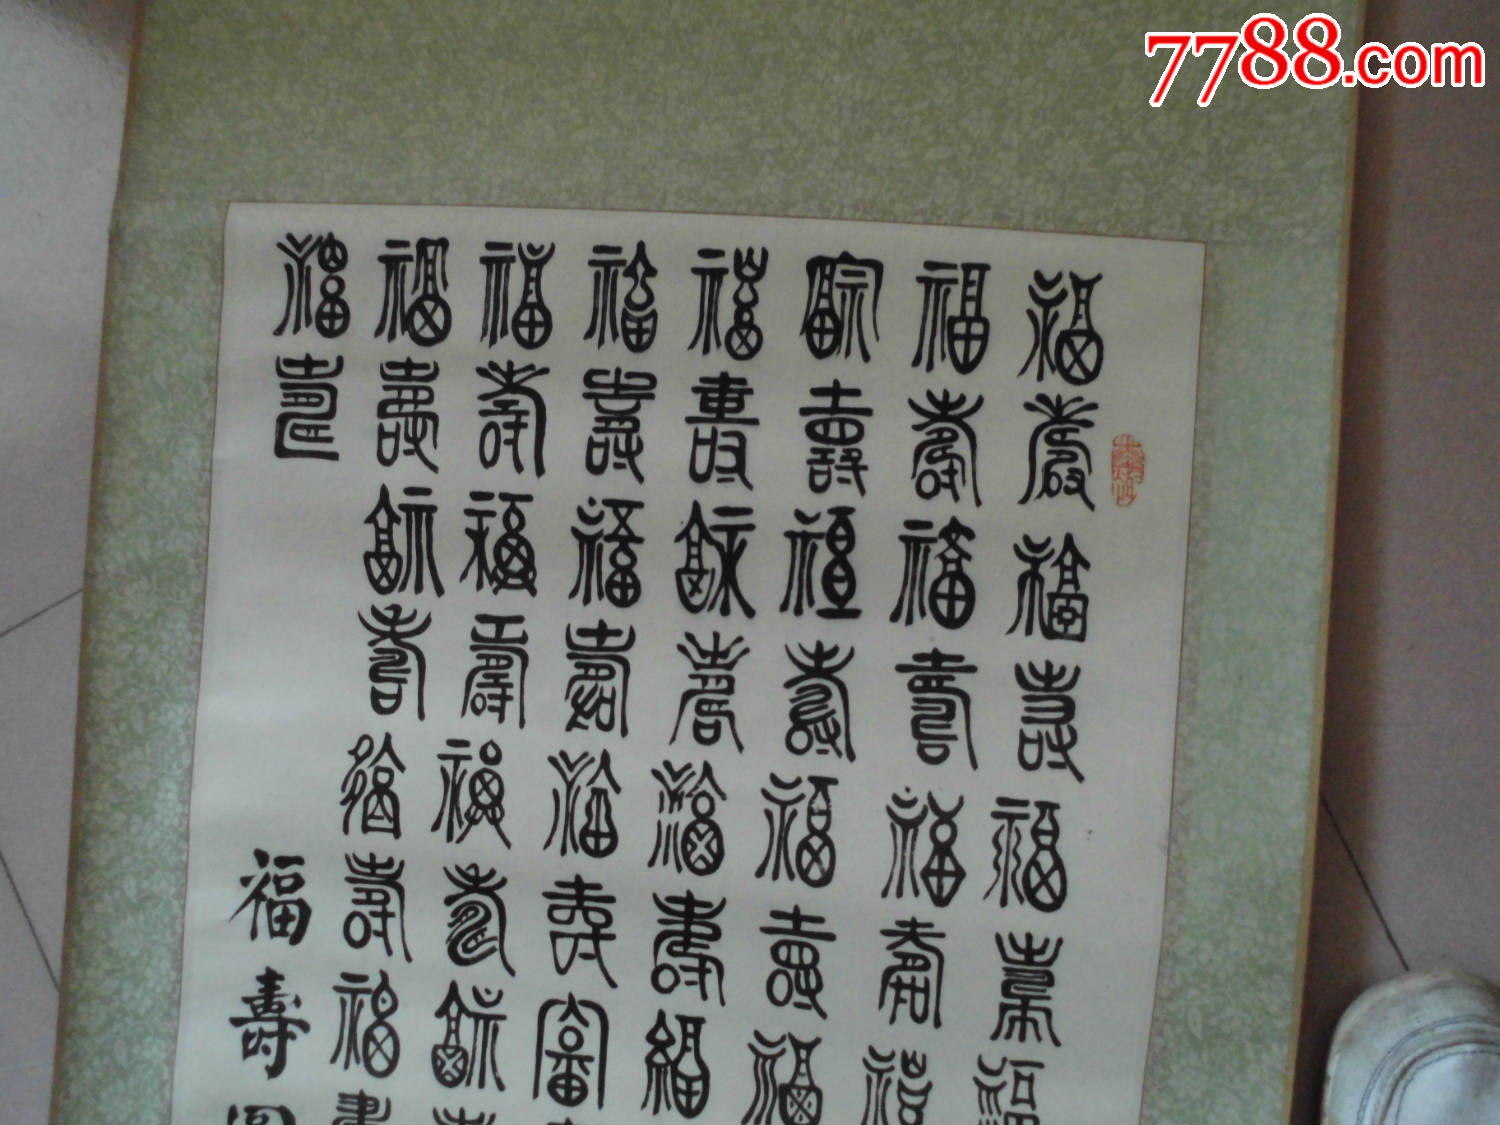 7788.com
福壽福壽福壽福
福壽福壽福壽福
福壽福壽福壽福
福壽福壽福壽福
福壽福壽福壽福
福壽福壽福壽福
福壽福壽福壽福
福壽
福壽